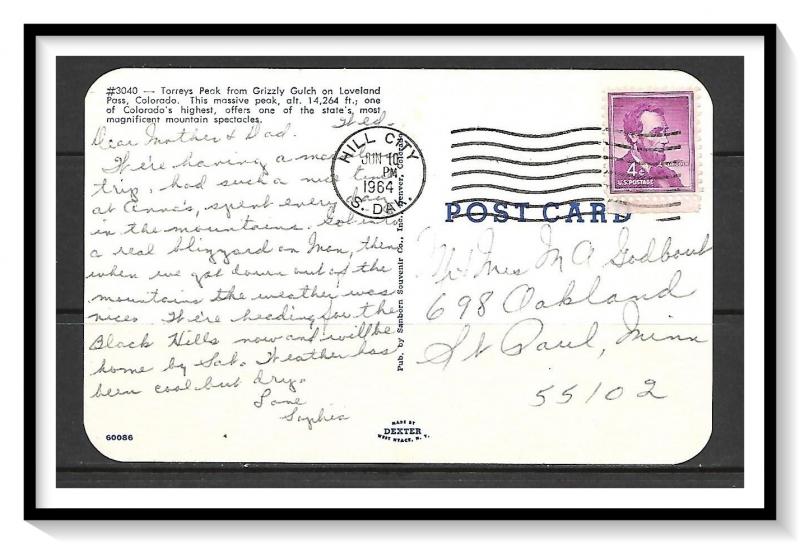 #3040 — Torreys Peak from Grizzly Gulch on Loveland
Pass, Colorado. This massive peak, alt. 14,264 ft.; one
of Colorado's highest, offers one of the state's, most
magnificent mountain spectacles.
Wed.
Dear Mother & Dad.
We're having a
trip, had such a nice time
at Anna's, spent every day
in the mountains. Got into
a real blizzard on Mon, then
when we got down out of the
mountains the weather was
nice. We're heading for the
Black Hills now and will be
home by Sat. Weather has
been cool but dry.
Love
Sophia
60086
Pub. by Sanborn Souvenir Co., Inc., Denver, Colorado
MADE BY
DEXTER
WEST NYACK, N. Y.
HILL CITY
JUN 10
PM
1964
S. DAK.
4¢
LINCOLN
U.S. POSTAGE
POST CARD
Mr Mrs M A Godbout
698 Oakland
St Paul, Minn
55102